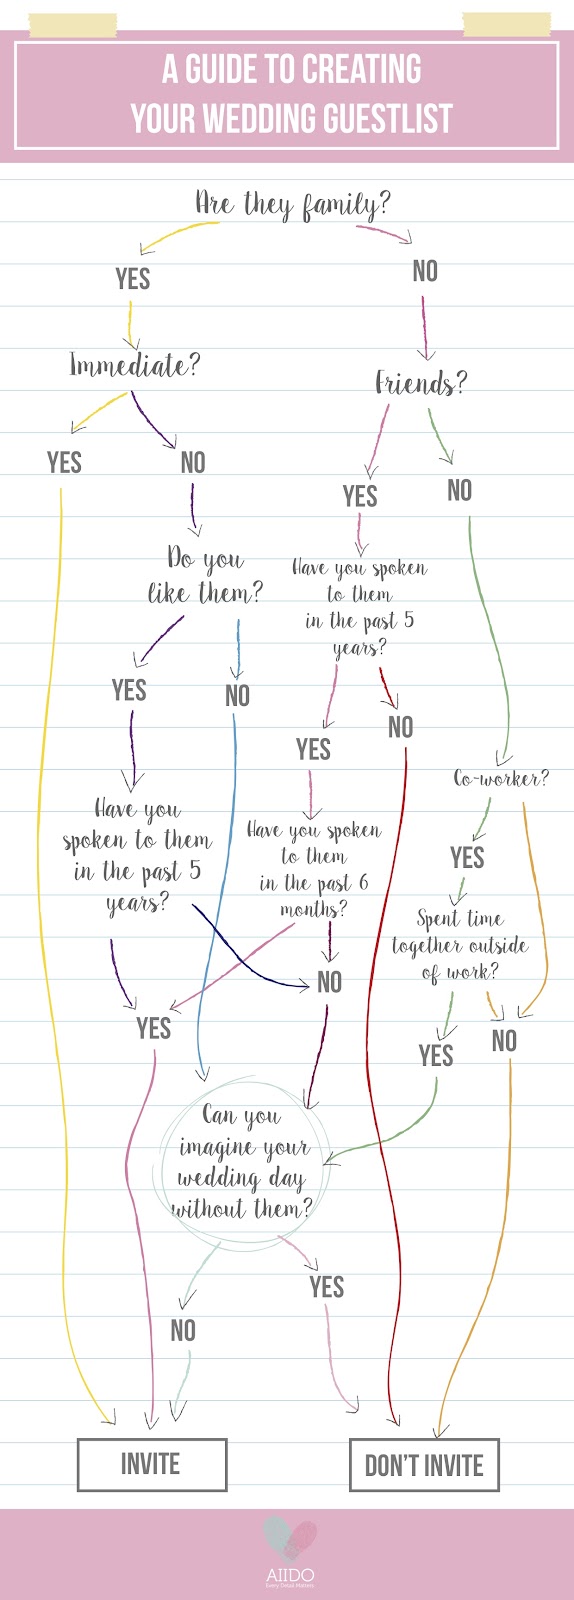 A GUIDE TO CREATING
YOUR WEDDING GUESTLIST
Are they family?
YES
NO
Immediate?
Friends?
YES
NO
YES
NO
Do you
like them?
Have you spoken
to them
in the past 5
years?
YES
NO
YES
NO
Co-worker?
Have you
spoken to them
in the past 5
years?
Have you spoken
to them
in the past 6
months?
YES
Spent time
together outside
of work?
NO
YES
YES
NO
Can you
imagine your
wedding day
without them?
YES
NO
INVITE
DON'T INVITE
AIIDO
Every Detail Matters